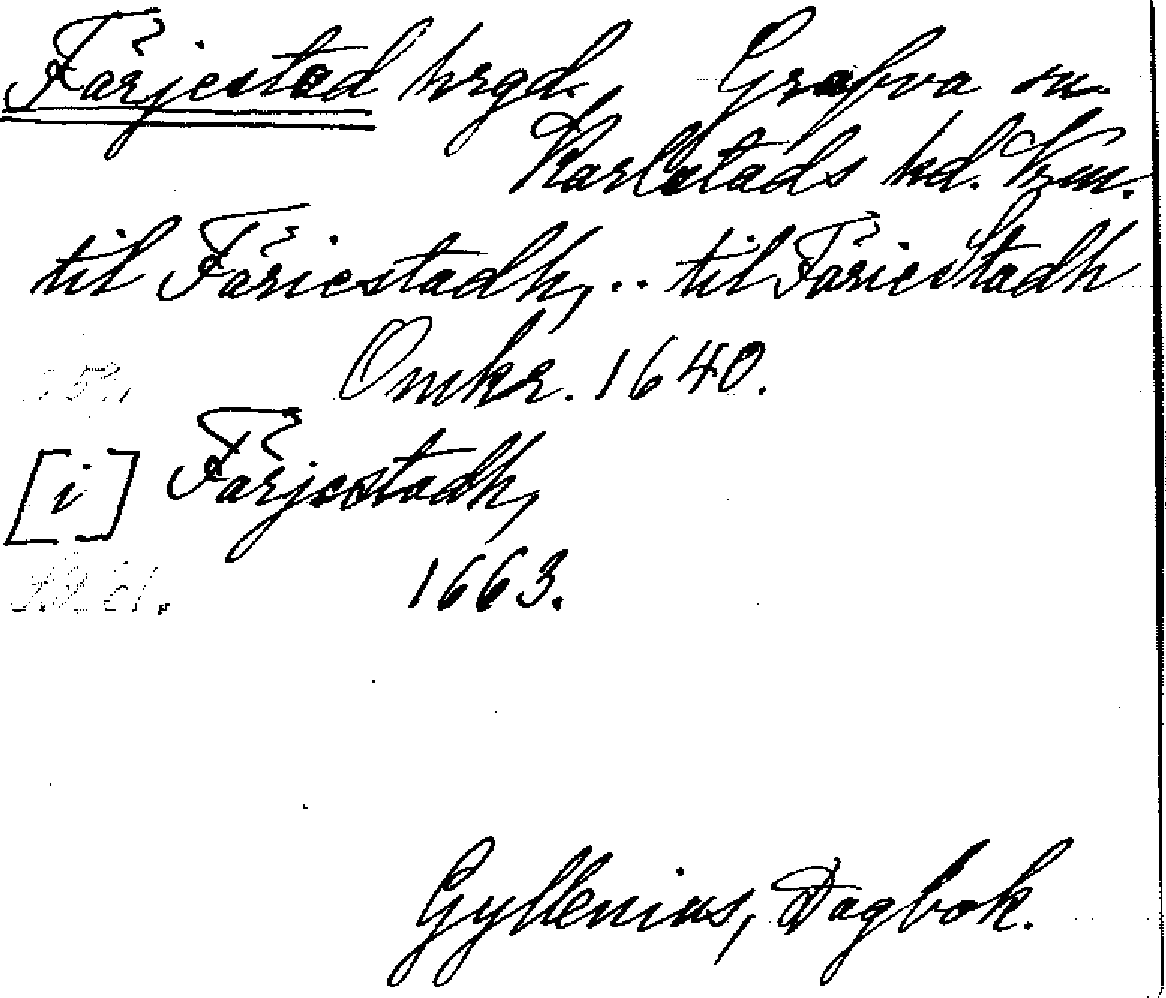 Färjestad hrgd., Grafva sn.
Karlstads hd. Vrm.
til Färiestadh, .. til FärieStadh
Omkr. 1640.
[i] Färjestadh,
1663.
Gyllenius, Dagbok.